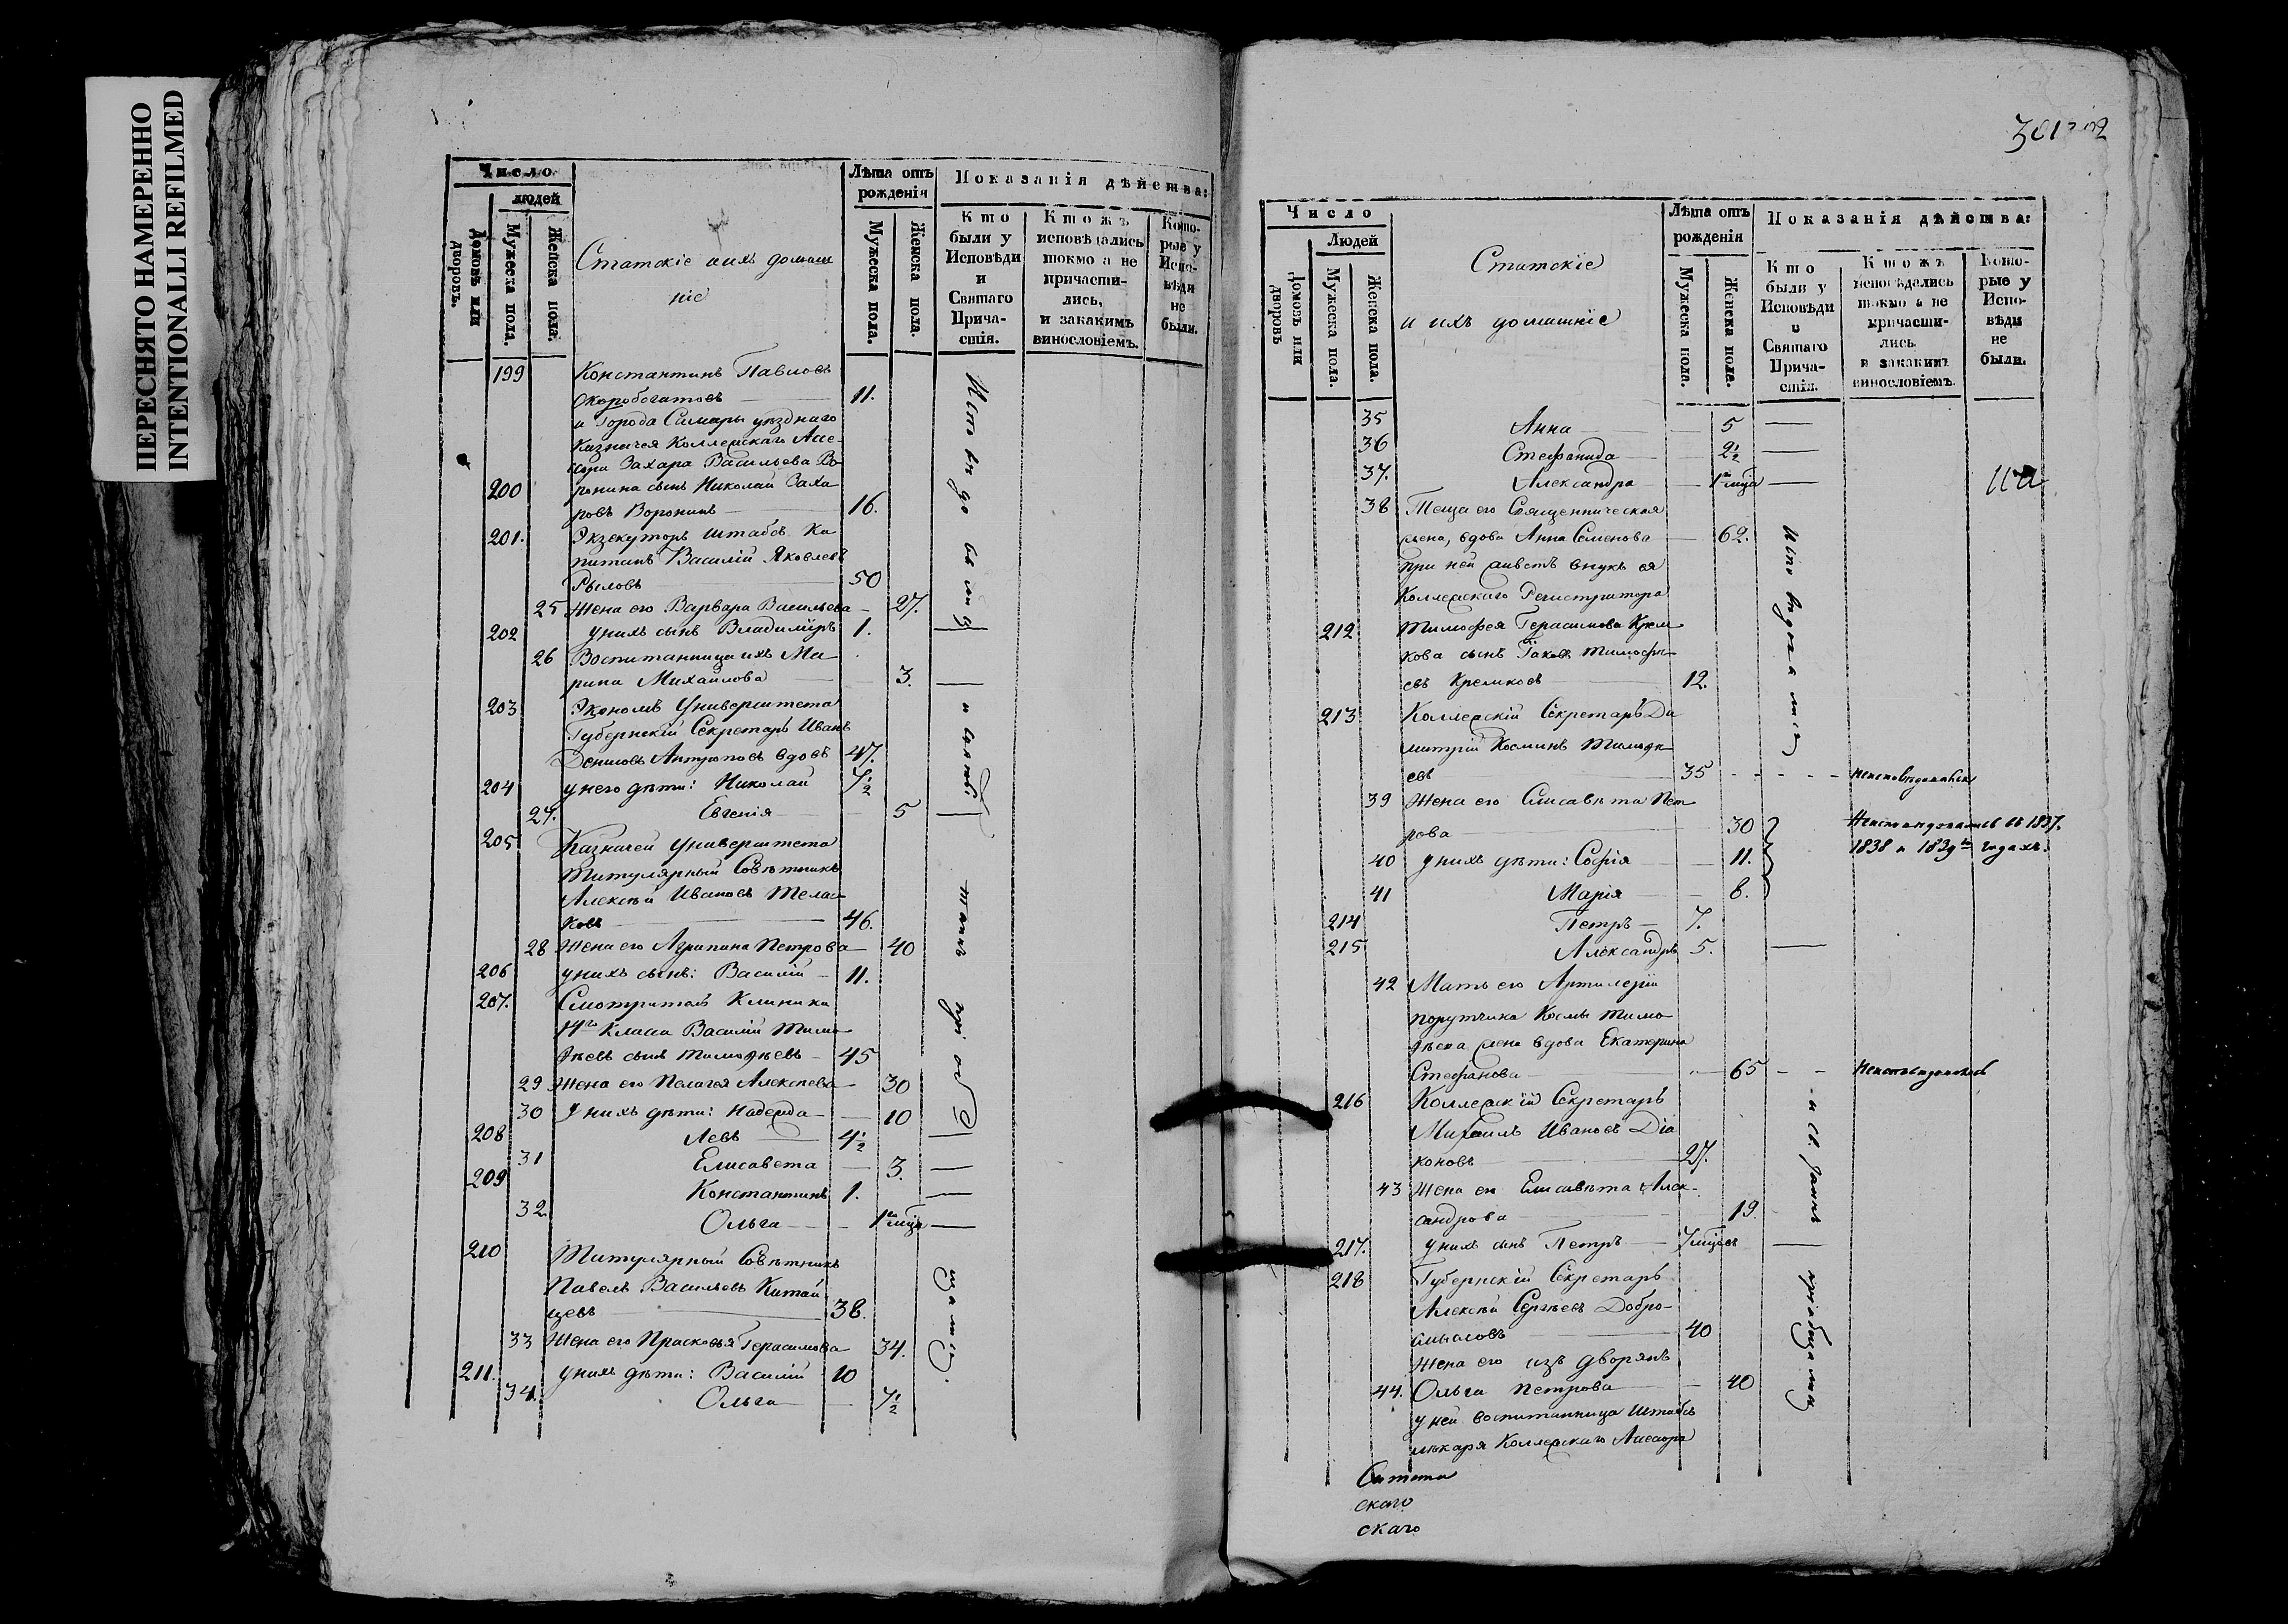 ПЕРЕСНЯТО НАМЕРЕННО
INTENTIONALLI REFILMED
Число
людей
Домовъ или дворовъ.
Мужеска пола.
Женска пола.
Статскіе и ихъ домаш
ніе
Лѣта отъ
рожденія
Мужеска пола.
Женска пола.
Показанія дѣйства:
Кто
были у
Исповѣди
и
Святаго
Прича-
стія.
Ктожъ
исповѣдались
токмо а не
причасти-
лись,
и закакимъ
винословіемъ.
Кото-
рые у
Испо-
вѣди
не
были.
199 Константинъ Павловъ
Скоробогатовъ 11.
и Города Самары уѣзднаго
Казначея Коллежскаго Ассе-
сора Захара Васильева Во-
200 ронина сынъ Николай Заха
ровъ Воронинъ 16.
201. Экзекуторъ Штабсъ Ка
питанъ Василій Яковлевъ
Рыловъ 50
25 Жена его Варвара Васильева 27.
202 у нихъ сынъ Владиміръ 1.
26 Воспитанница ихъ Ма
рина Михайлова 3.
203 Экономъ Университета
Губернскій Секретарь Иванъ
Денисовъ Антроповъ вдовъ 47.
204 у него дѣти: Николай 7½
27. Евгенія 5
205 Казначей Университета
Титулярный Совѣтникъ
Алексѣй Ивановъ
ковъ 46.
28 Жена его Агрипина Петрова 40
206 у нихъ сынъ: Василій 11.
207. Смотритель Клиники
14го Класса Василій Тимо
ѳѣевъ сынъ Тимоѳѣевъ 45
29 Жена его Пелагея Алексѣева 30
30 У нихъ дѣти: Надежда 10
208 Левъ 4½
31 Елисавета 3.
209 Константинъ 1.
32. Ольга 1 мѣца
210 Титулярный Совѣтникъ
Павелъ Васильевъ Китай
цевъ 38.
33 Жена его Прасковья Герасимова 34.
211. у нихъ дѣти: Василій 10
34. Ольга 7½
Исповѣдались
и святыхъ
таинъ
пріоб
щались.
301
Число
Людей
Домовъ или дворовъ
Мужеска пола.
Женска пола.
Статскіе
и ихъ домашніе
Лѣта отъ
рожденія
Мужеска пола.
Женска пола.
Показанія дѣйства:
Кто
были у
Исповѣди
и
Святаго
Прича-
стія.
Ктожъ
исповѣдались
токмо а не
причасти-
лись.
и закакимъ
винословіемъ.
Кото-
рые у
Испо-
вѣди
не
были.
35 Анна 5
36 Стефанида 2½
37. Александра 1 мѣца
38 Теща его Священническая
жена, вдова Анна Семенова 62.
при ней живетъ внукъ ея
Коллежскаго Регистратора
212 Тимофея Герасимова Крем
кова сынъ Іаковъ Тимофе
евъ Кремковъ 12.
213 Коллежскій Секретарь Ди
митрій Косминъ Тимоѳе
евъ 35 неисповѣдовался
39 Жена его Елисавѣта Пет
рова 30 Неисповѣдовались въ 1837.
40 у нихъ дѣти: Софія 11. 1838 и 1839мъ годахъ.
41 Марія 8.
214 Петръ 7.
215 Александръ 5.
42 Мать его Артилеріи
порутчика Космы Тимо
ѳѣева жена вдова Екатерина
Стефанова 65 Неисповѣдовалась
216 Коллежскій Секретарь
Михаилъ Ивановъ Діа
коновъ 27.
43 Жена его Елисавѣта Алек-
сандрова 19.
217. у нихъ сынъ Петръ 7 мѣцовъ
218 Губернскій Секретарь
Алексѣй Сергѣевъ Добро-
смысловъ 40
Жена его изъ дворянъ
44. Ольга Петрова 40
у ней воспитанница Штабсъ
лѣкаря Коллежскаго Ассесора
Исповѣдались
и св. Таинъ
пріобщались
скаго
скаго